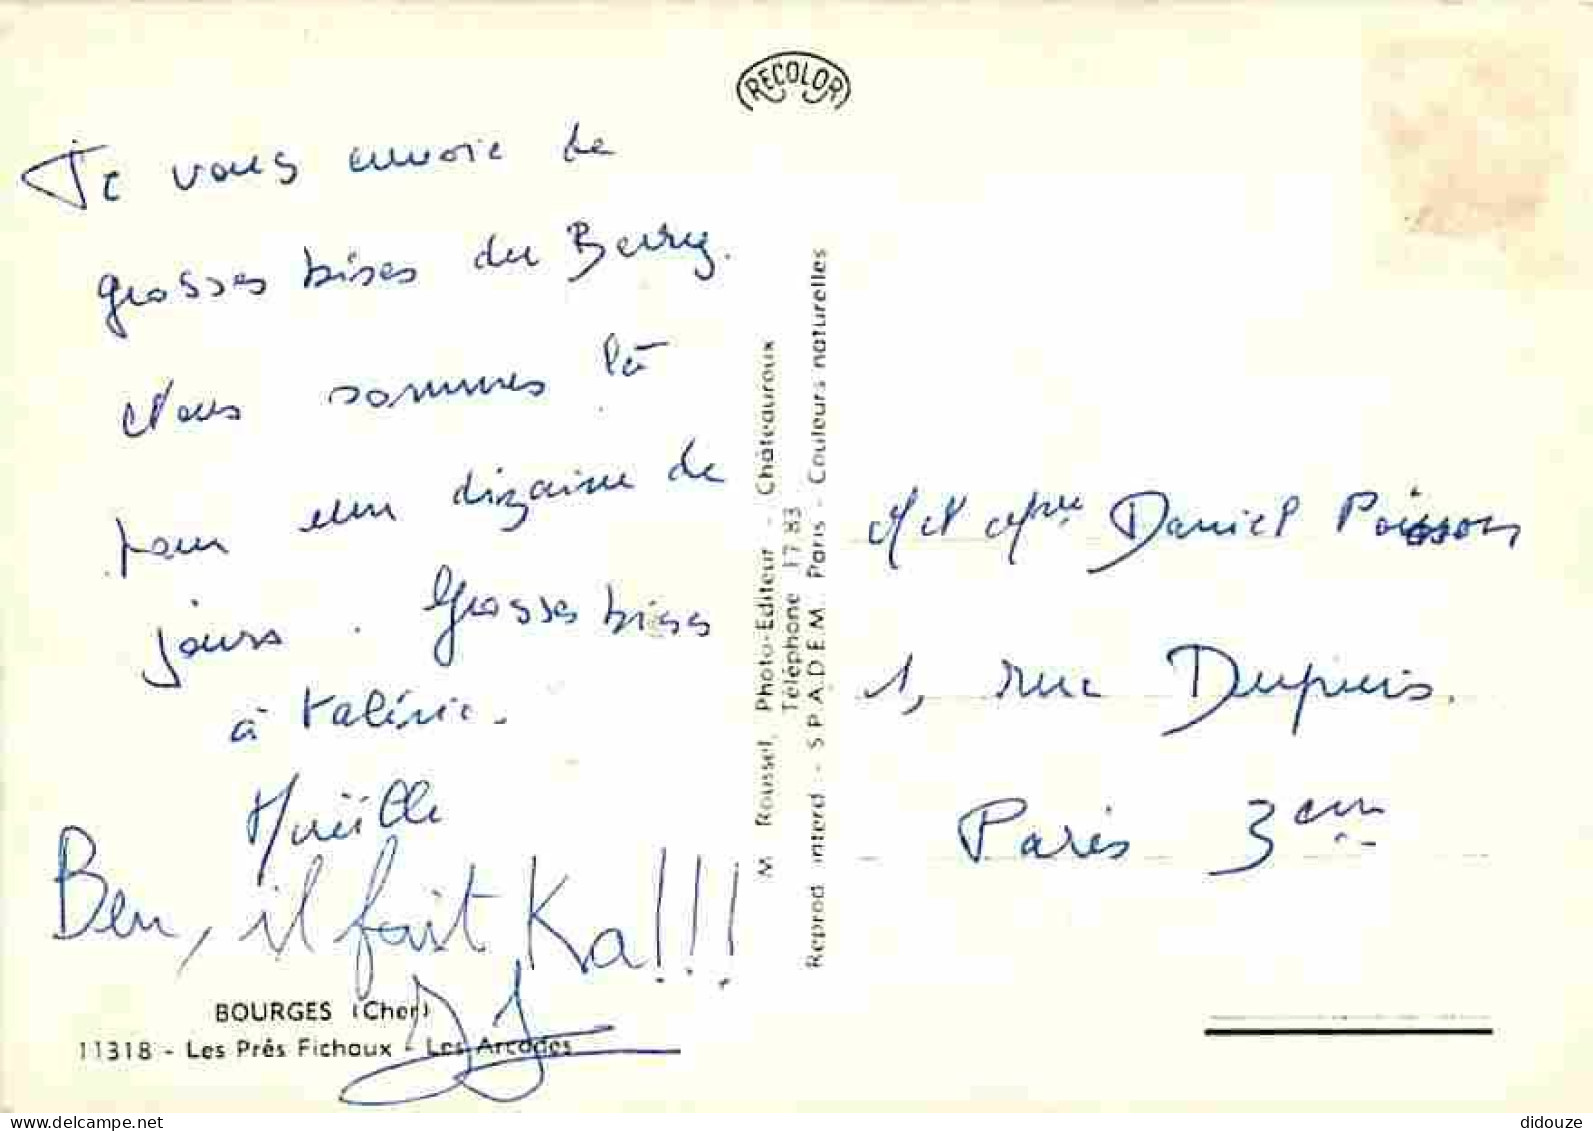 RECOLOR
Je vous envoie de
grosses bises du Berry.
Nous sommes là
pour une dizaine de
jours. Grosses bises
à Valérie.
Ben, il fait Ka!!!
BOURGES (Cher)
11318 - Les Prés Fichaux - Les Arcades
M Roussel, Photo-Editeur - Châteauroux
Téléphone 17 83
Reprod interd - S.P.A.D.E.M. Paris - Couleurs naturelles
M et Mme Daniel Poisson
1, rue Dupuis.
Paris 3eme
delcampe.net
didouze